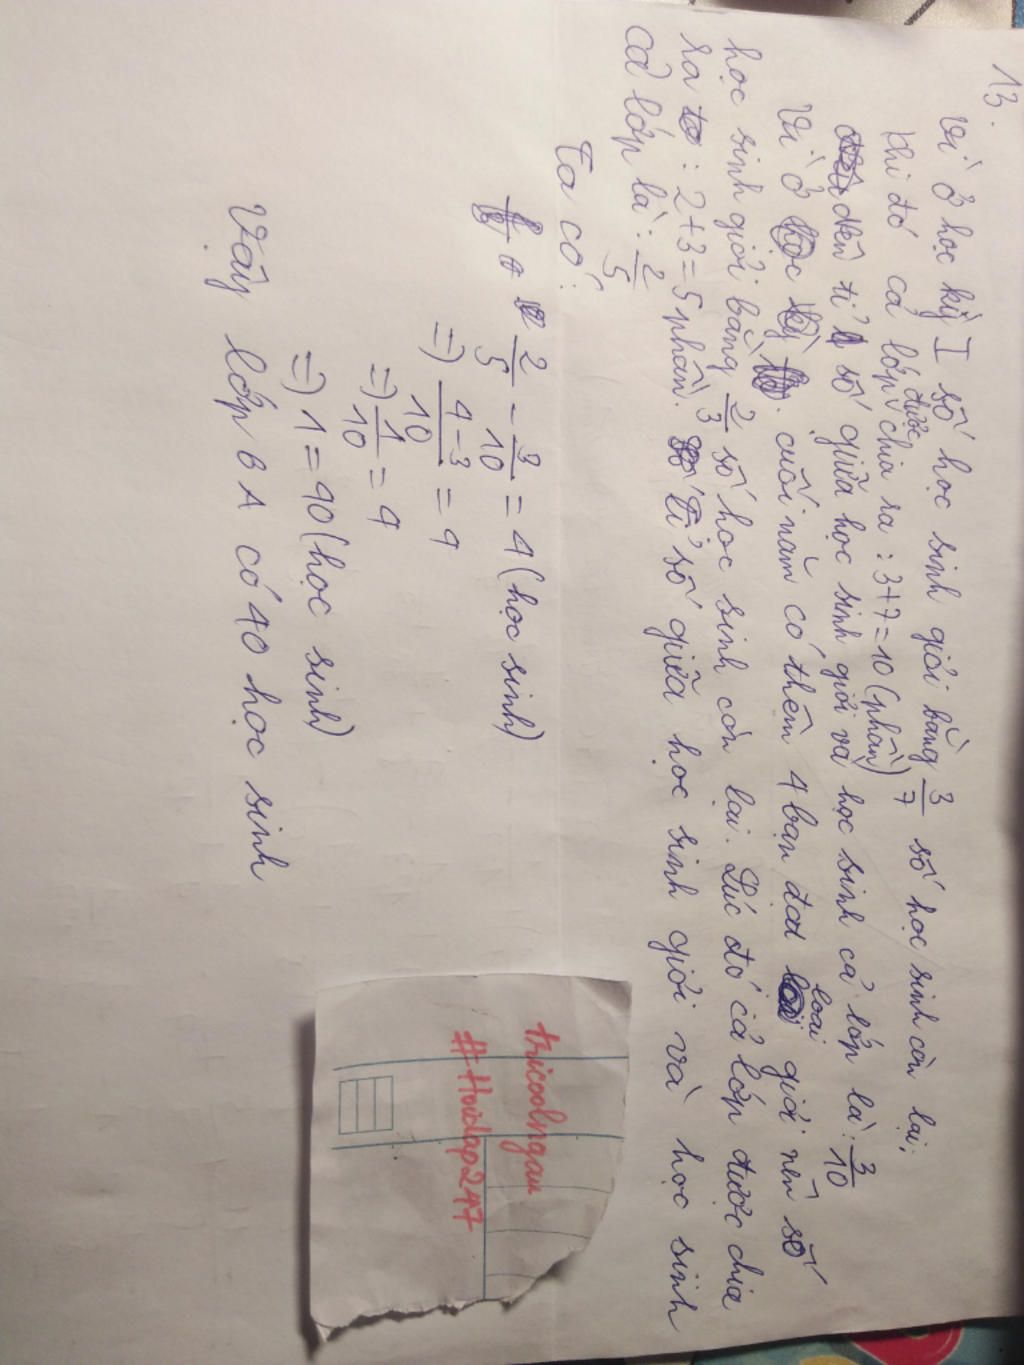 13.
Vì ở học kỳ I số học sinh giỏi bằng 3/7 số học sinh còn lại,
khi đó cả lớp được chia ra : 3+7=10 (phần)
đến tỉ số giữa học sinh giỏi và học sinh cả lớp là : 3/10
Vì ở cuối năm có thêm 4 bạn đạt loại giỏi nên số
học sinh giỏi bằng 2/3 số học sinh còn lại. Lúc đó cả lớp được chia
ra : 2+3=5 phần. Tỉ số giữa học sinh giỏi và học sinh
cả lớp là : 2/5
Ta có :
2/5 - 3/10 = 4 (học sinh)
=) 4-3/10 = 4
=) 1/10 = 4
=) 1 = 40 (học sinh)
Vậy lớp 6A có 40 học sinh
tricoolngau
#Hoidap247